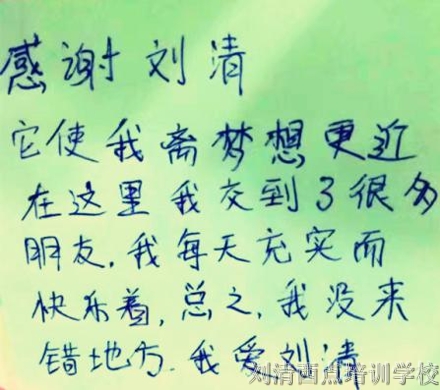 感谢刘清
它使我离梦想更近
在这里我交到了很多
朋友,我每天充实而
快乐着,总之,我没来
错地方.我爱刘清
刘清西点培训学校